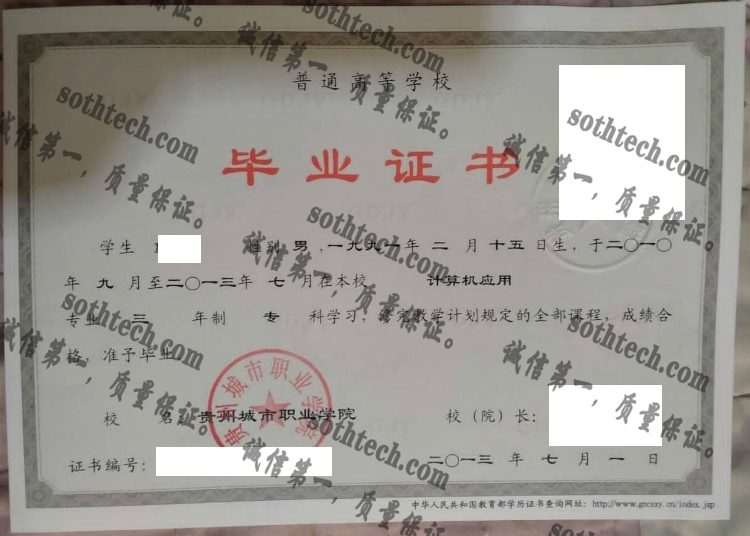 普通高等学校
毕业证书
学生 性别 男 ,一九九一年 二 月 十五 日生, 于二〇一〇
年 九 月至二〇一三年 七 月在本校 计算机应用
专业 三 年制 专 科学习, 修完教学计划规定的全部课程, 成绩合
格, 准予毕业
校 名: 贵州城市职业学院 校 (院) 长:
证书编号:
二〇一三 年 七 月 一 日
中华人民共和国教育部学历证书查询网址: http://www.gzcsxy.cn/index.jsp
贵州城市职业学院
sothtech.com
诚信第一,质量保证。
sothtech.com
诚信第一,质量保证。
sothtech.com
诚信第一,质量保证。
sothtech.com
诚信第一,质量保证。
sothtech.com
诚信第一,质量保证。
sothtech.com
诚信第一,质量保证。
sothtech.com
诚信第一,质量保证。